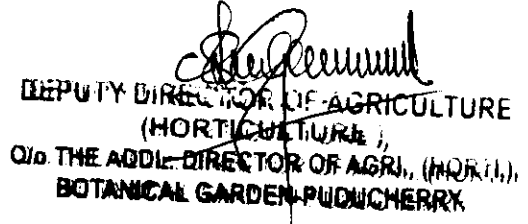 DEPUTY DIRECTOR OF AGRICULTURE
(HORTICULTURE),
O/o. THE ADDL. DIRECTOR OF AGRI., (HORTI.),
BOTANICAL GARDEN PUDUCHERRY